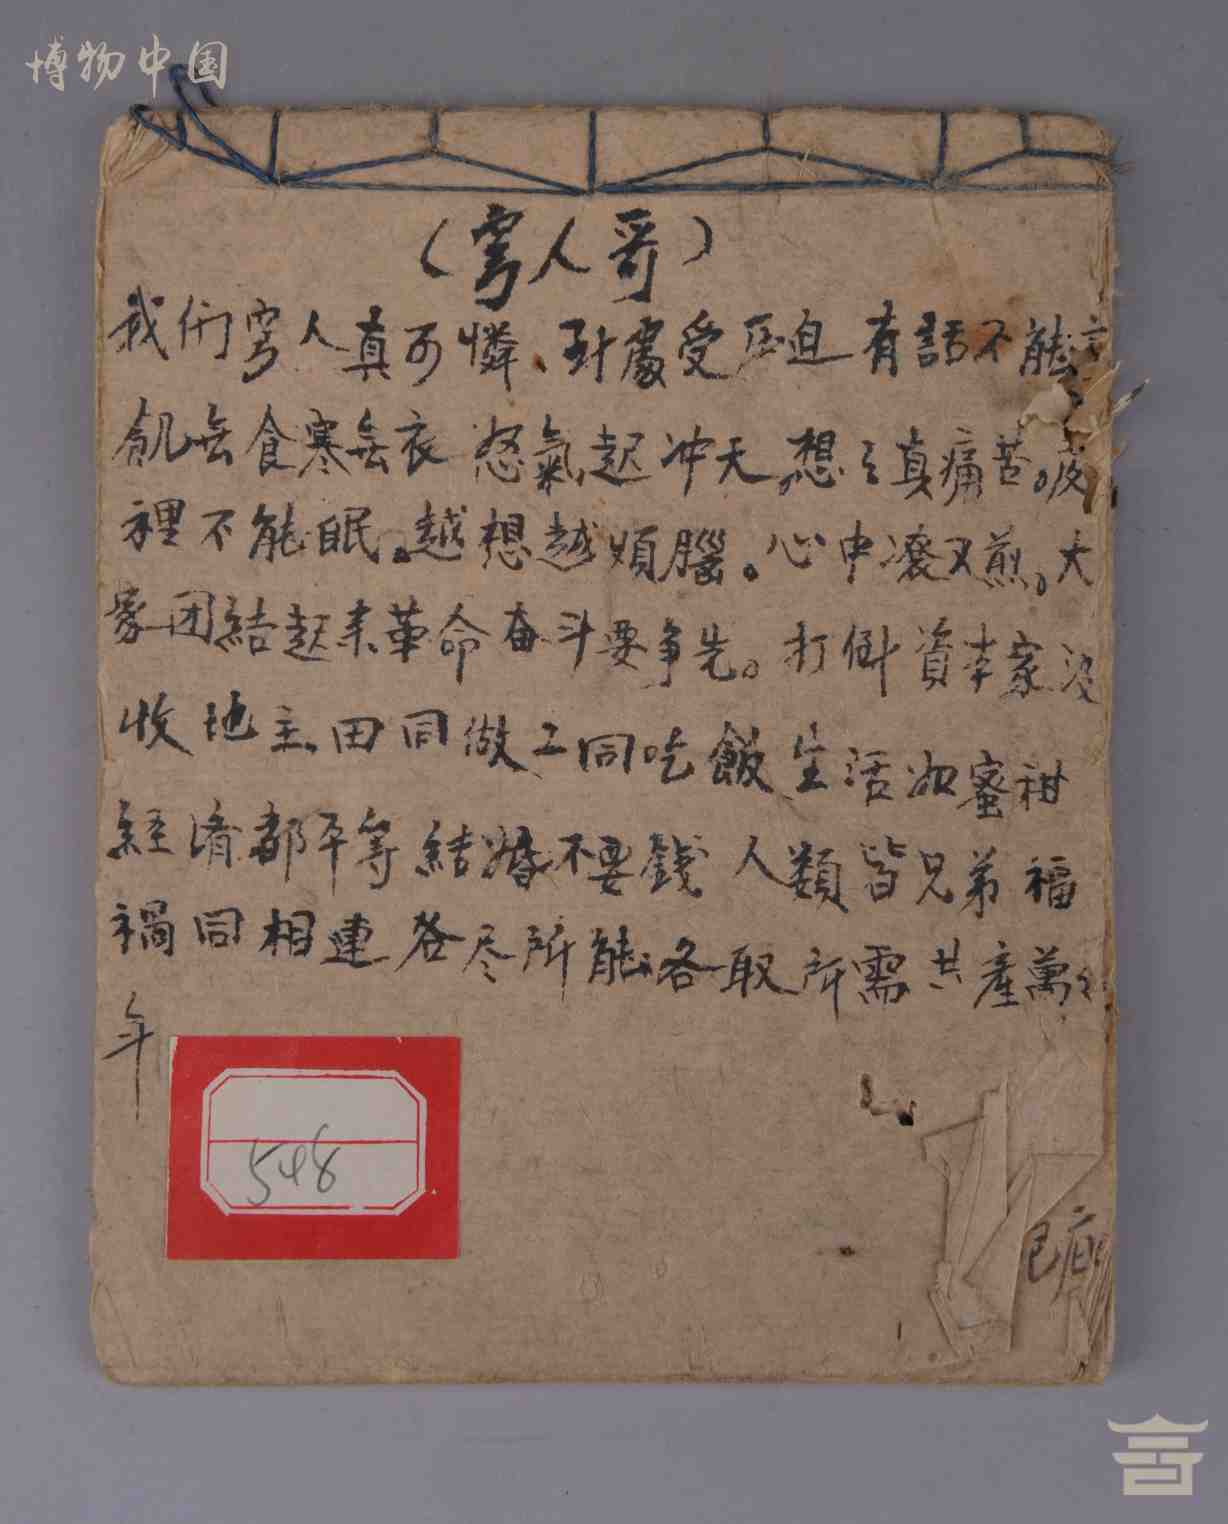 博物中国
（穷人哥）
我们穷人真可憐、到處受压迫有話不能言
飢無食寒無衣怒氣起冲天,想之真痛苦。夜
裡不能眠。越想越煩腦。心中滚又煎。大
家团結起来革命奋斗要争先。打倒資本家没
收地主田同做工同吃飯生活如蜜柑
經濟都平等結婚不要錢人類皆兄弟福
禍同相連各尽所能各取所需共產萬
年
548